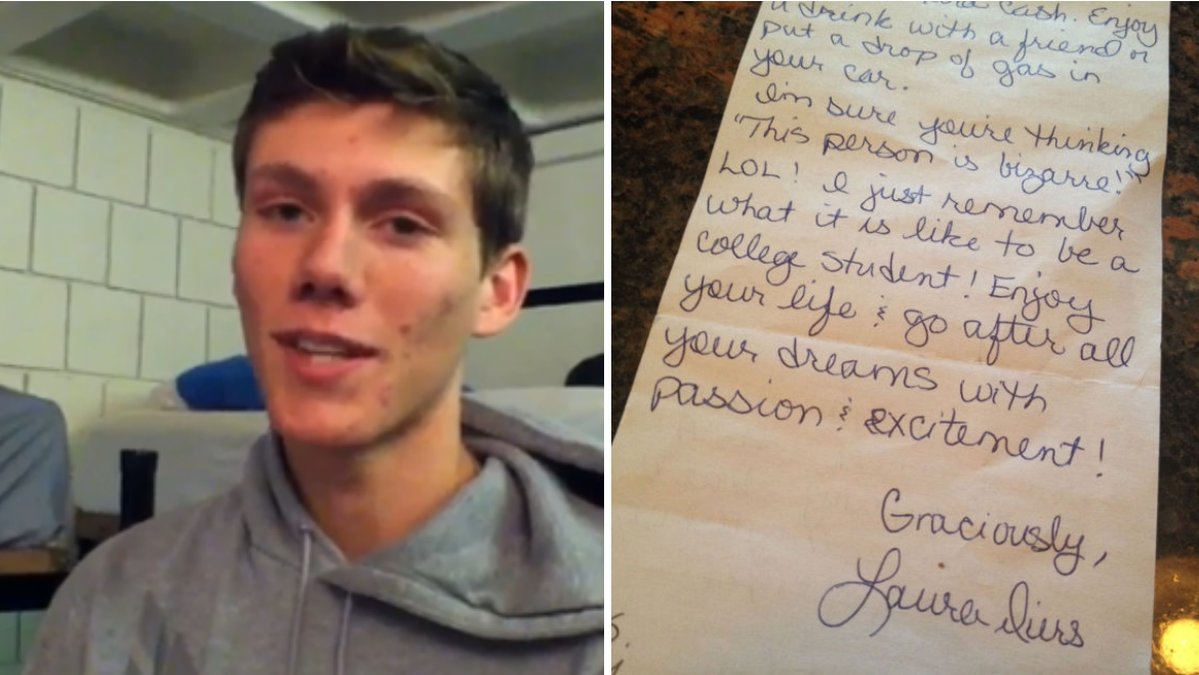 cash. Enjoy
a drink with a friend or
put a drop of gas in
your car.
I'm sure you're thinking
"This person is bizarre!"
LOL! I just remember
what it is like to be a
college student! Enjoy
your life & go after all
your dreams with
passion & excitement!
Graciously,
Laura Diers